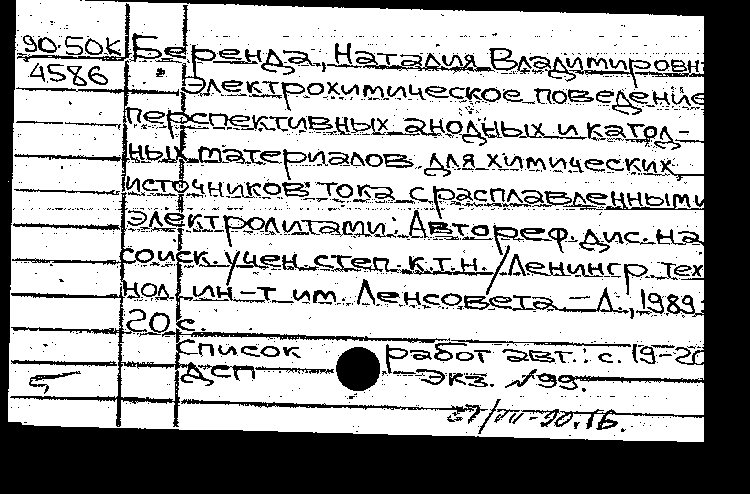 90-50К Беренда, Наталия Владимировн
4586 Электрохимическое поведение
перспективных анодных и катод-
ных материалов для химических
источников тока с расплавленными
электролитами: Автореф. дис. на
соиск. учен. степ. к.т.н. / Ленингр. тех
нол. ин-т им. Ленсовета. – Л., 1989.
20 с.
Список работ авт.: с. 19-20
ДСП Экз. №99.